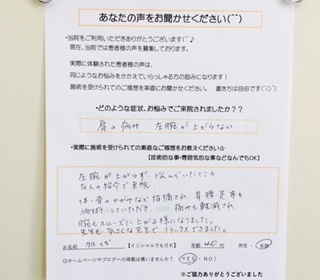 あなたの声をお聞かせください(^^)
・当院をご利用いただきありがとうございます(^^♪
現在、当院では患者様の声を募集しております。
実際に体験された患者様の声は、
同じようなお悩みをかかえていらっしゃる方の励みになります！
施術を受けられてのご感想を率直にお聞かせください。 書き方は自由です(^◇^)
・どのような症状、お悩みでご来院されましたか？？
肩の痛み 左腕が上がらない
・実際に施術を受けられての素直なご感想をお教えください☆
【技術的な事・雰囲気的な事などなんでもOK】
左腕が上がらず、悩んでいたところ
友人の紹介で来院。
体・骨のゆがみなど指摘され
ほぐしていただき 痛みも軽減され
腕もスムーズに上がる様になりました。
先生も気さくな先生で、リラックスできました。
お名前 【イニシャルでもOK】 年齢 40代 男性・女性
◎ホームページやブログへの掲載は構いませんか？ YES・NO
※ご協力ありがとうございます